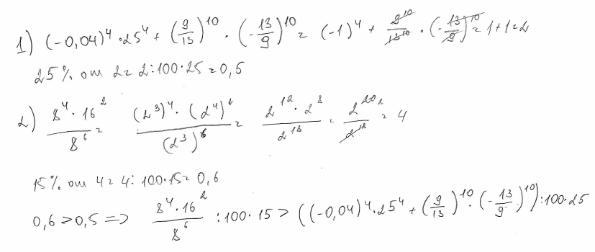 1) (-0,04)⁴·25⁴ + (9/13)¹⁰·(-13/9)¹⁰ = (-1)⁴ + 9¹⁰/13¹⁰·(-13/9)¹⁰ = 1+1=2
25% от 2 = 2:100·25 = 0,5
2) 8⁴·16²/8⁶ = (2³)⁴·(2⁴)²/(2³)⁶ = 2¹²·2⁸/2¹⁸ = 2²⁰/2¹⁸ = 4
15% от 4 = 4:100·15 = 0,6
0,6 > 0,5 => 8⁴·16²/8⁶ :100·15 > ((-0,04)⁴·25⁴ + (9/13)¹⁰·(-13/9)¹⁰):100·25